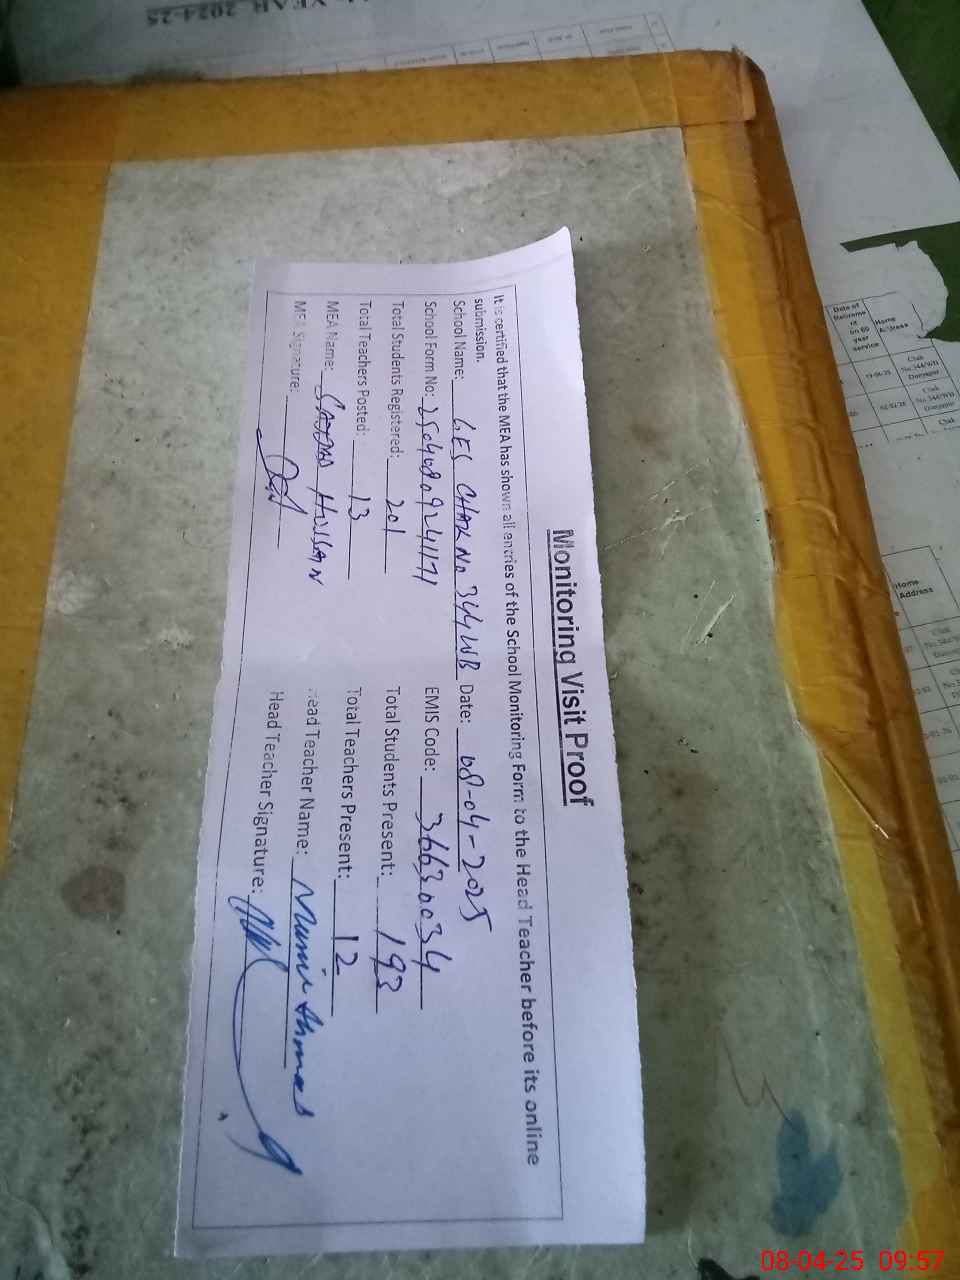 Monitoring Visit Proof
It is certified that the MEA has shown all entries of the School Monitoring Form to the Head Teacher before its online
submission.
School Name: GES CHAK NO 344 WB Date: 08-04-2025
School Form No: 25040809241171 EMIS Code: 36630034
Total Students Registered: 201 Total Students Present: 193
Total Teachers Posted: 13 Total Teachers Present: 12
MEA Name: SAJJAD HUSSAIN Head Teacher Name: Munir Ahmad
MEA Signature: Head Teacher Signature:
YEAR 2024-25
Date of
Retireme
nt
on 60
year
service
Home
Address
Chak
No.344/WB
Dunyapur
Chak
No.344/WB
Dunyapur
Chak
Home
Address
08-04-25 09:57